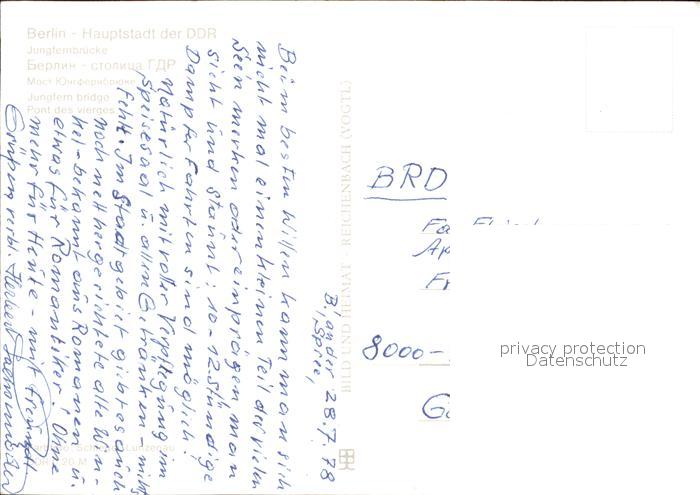 Berlin - Hauptstadt der DDR
Jungfernbrücke
Берлин - столица ГДР
Мост Юнгфернбрюкке
Jungfern bridge
Pont des vierges
BILD UND HEIMAT · REICHENBACH (VOGTL)
B' an der
Spree,
28.7.78
Beim besten Willen kann man sich
nicht mal einen kleinen Teil der vielen
Seen merken oder einprägen man
sieht und staunt: 10-12 Stündige
Dampferfahrten sind möglich!
Natürlich mit voller Verpflegung im
Speisesaal u. allen Getränken - nichts
fehlt. Im Stadtgebiet gibt es auch
noch nett hergerichtete alte Win-
kel - bekannt aus Romanen u.
etwas für Romantiker! Ohne
mehr für Heute - mit freundl.
Grüßen
BRD
8000-
privacy protection
Datenschutz